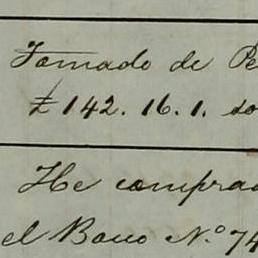 Tomado de Pe
£ 142. 16. 1. so
He comprad
el Banco Nº 74